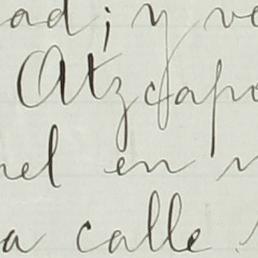 ad; y ve
Atzcapo
el en
a calle